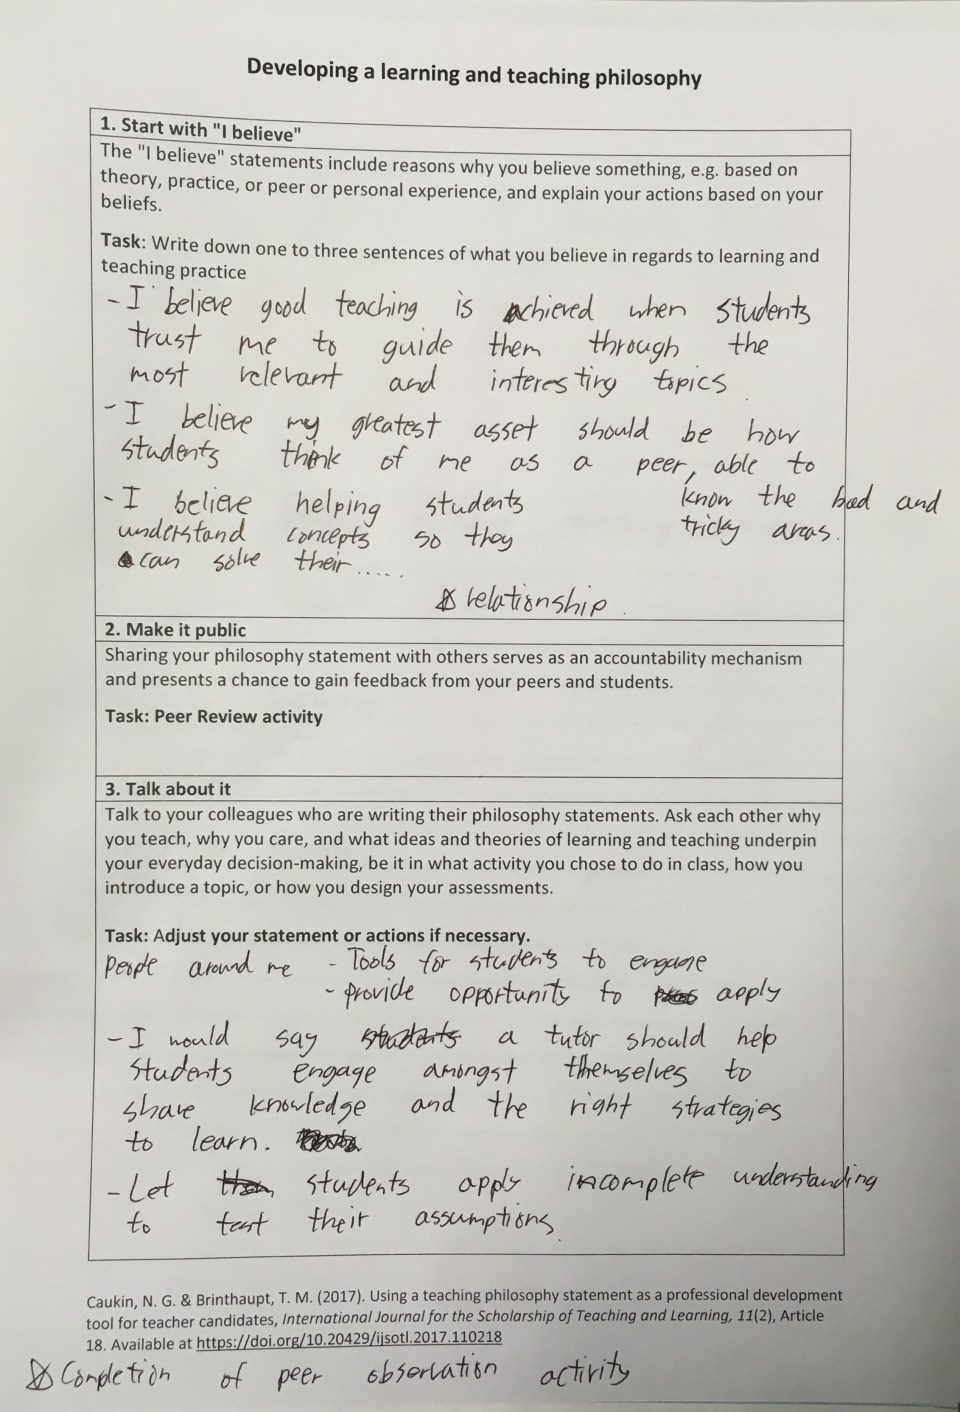 Developing a learning and teaching philosophy
1. Start with "I believe"
The "I believe" statements include reasons why you believe something, e.g. based on
theory, practice, or peer or personal experience, and explain your actions based on your
beliefs.
Task: Write down one to three sentences of what you believe in regards to learning and
teaching practice
- I believe good teaching is achieved when students
trust me to guide them through the
most relevant and interesting topics
- I believe my greatest asset should be how
students think of me as a peer, able to
know the bad and
tricky areas.
- I believe helping students
understand concepts so they
can solve their.....
relationship.
2. Make it public
Sharing your philosophy statement with others serves as an accountability mechanism
and presents a chance to gain feedback from your peers and students.
Task: Peer Review activity
3. Talk about it
Talk to your colleagues who are writing their philosophy statements. Ask each other why
you teach, why you care, and what ideas and theories of learning and teaching underpin
your everyday decision-making, be it in what activity you chose to do in class, how you
introduce a topic, or how you design your assessments.
Task: Adjust your statement or actions if necessary.
People around me - Tools for students to engage
- provide opportunity to apply
- I would say students a tutor should help
students engage amongst themselves to
share knowledge and the right strategies
to learn.
- Let them students apply incomplete understanding
to test their assumptions.
Caukin, N. G. & Brinthaupt, T. M. (2017). Using a teaching philosophy statement as a professional development
tool for teacher candidates, International Journal for the Scholarship of Teaching and Learning, 11(2), Article
18. Available at https://doi.org/10.20429/ijsotl.2017.110218
Completion of peer observation activity